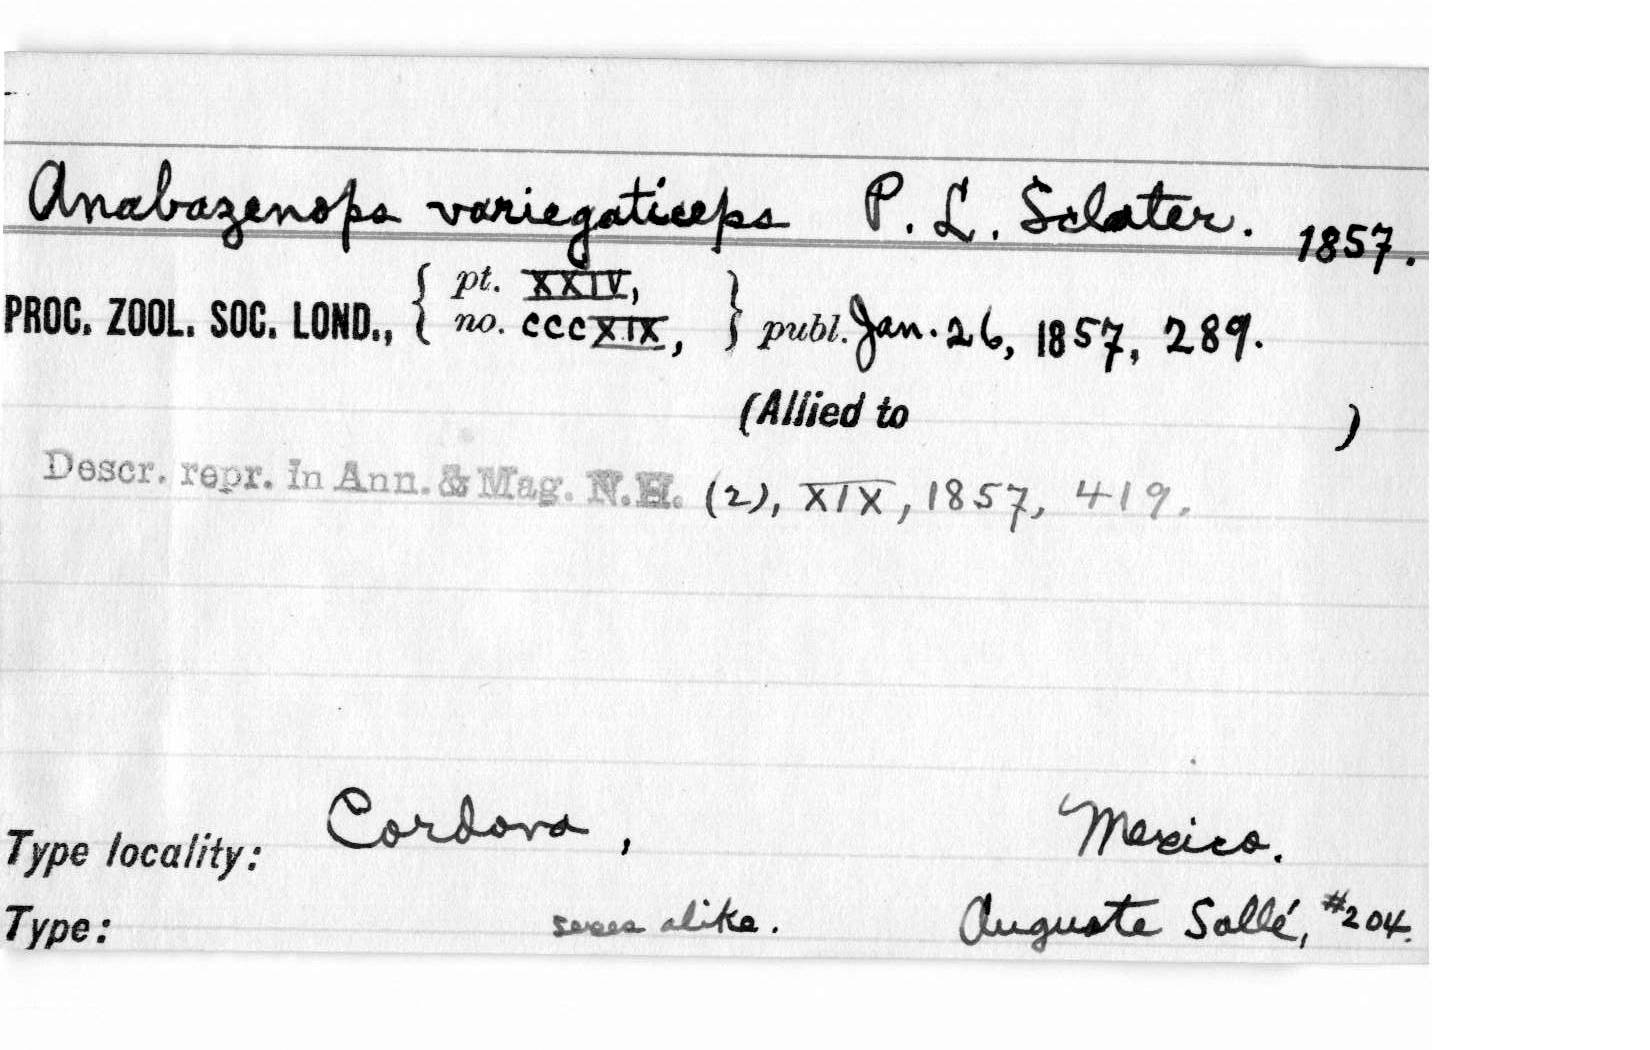 Anabazenops variegaticeps P. L. Sclater. 1857.
PROC. ZOOL. SOC. LOND., { pt. XXIV, no. cccXIX, } publ. Jan. 26, 1857, 289.
(Allied to )
Descr. repr. in Ann. & Mag. N.H. (2), XIX, 1857, 419.
Type locality: Cordova, Mexico.
Type: sexes alike. Auguste Sallé, #204.